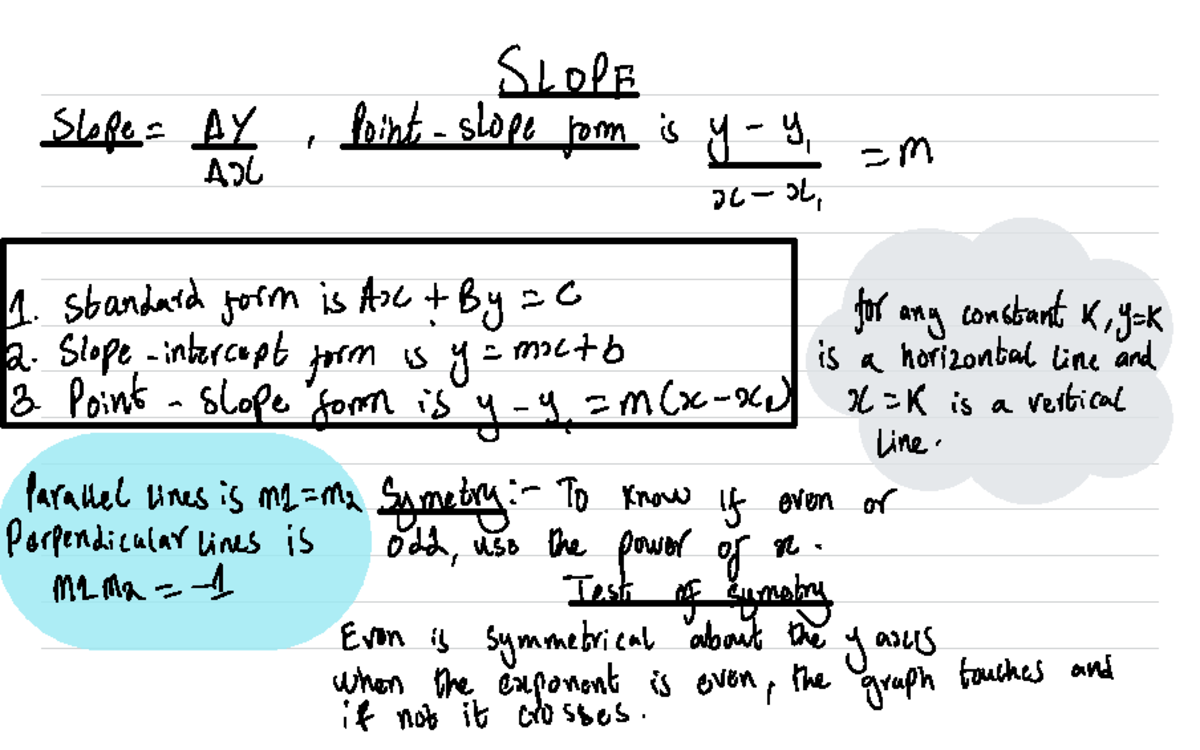 SLOPE
Slope = ΔY/Δx , Point-slope form is (y - y₁)/(x - x₁) = m
1. Standard form is Ax + By = C
2. Slope-intercept form is y = mx + b
3 Point - slope form is y - y₁ = m(x - x₁)
for any constant K, y=K
is a horizontal line and
x = K is a vertical
line.
Parallel lines is m1 = m2
Perpendicular lines is
m1 m2 = -1
Symetry:- To know if even or
odd, use the power of x.
Test of symetry
Even is symmetrical about the y axis
when the exponent is even, the graph touches and
if not it crosses.